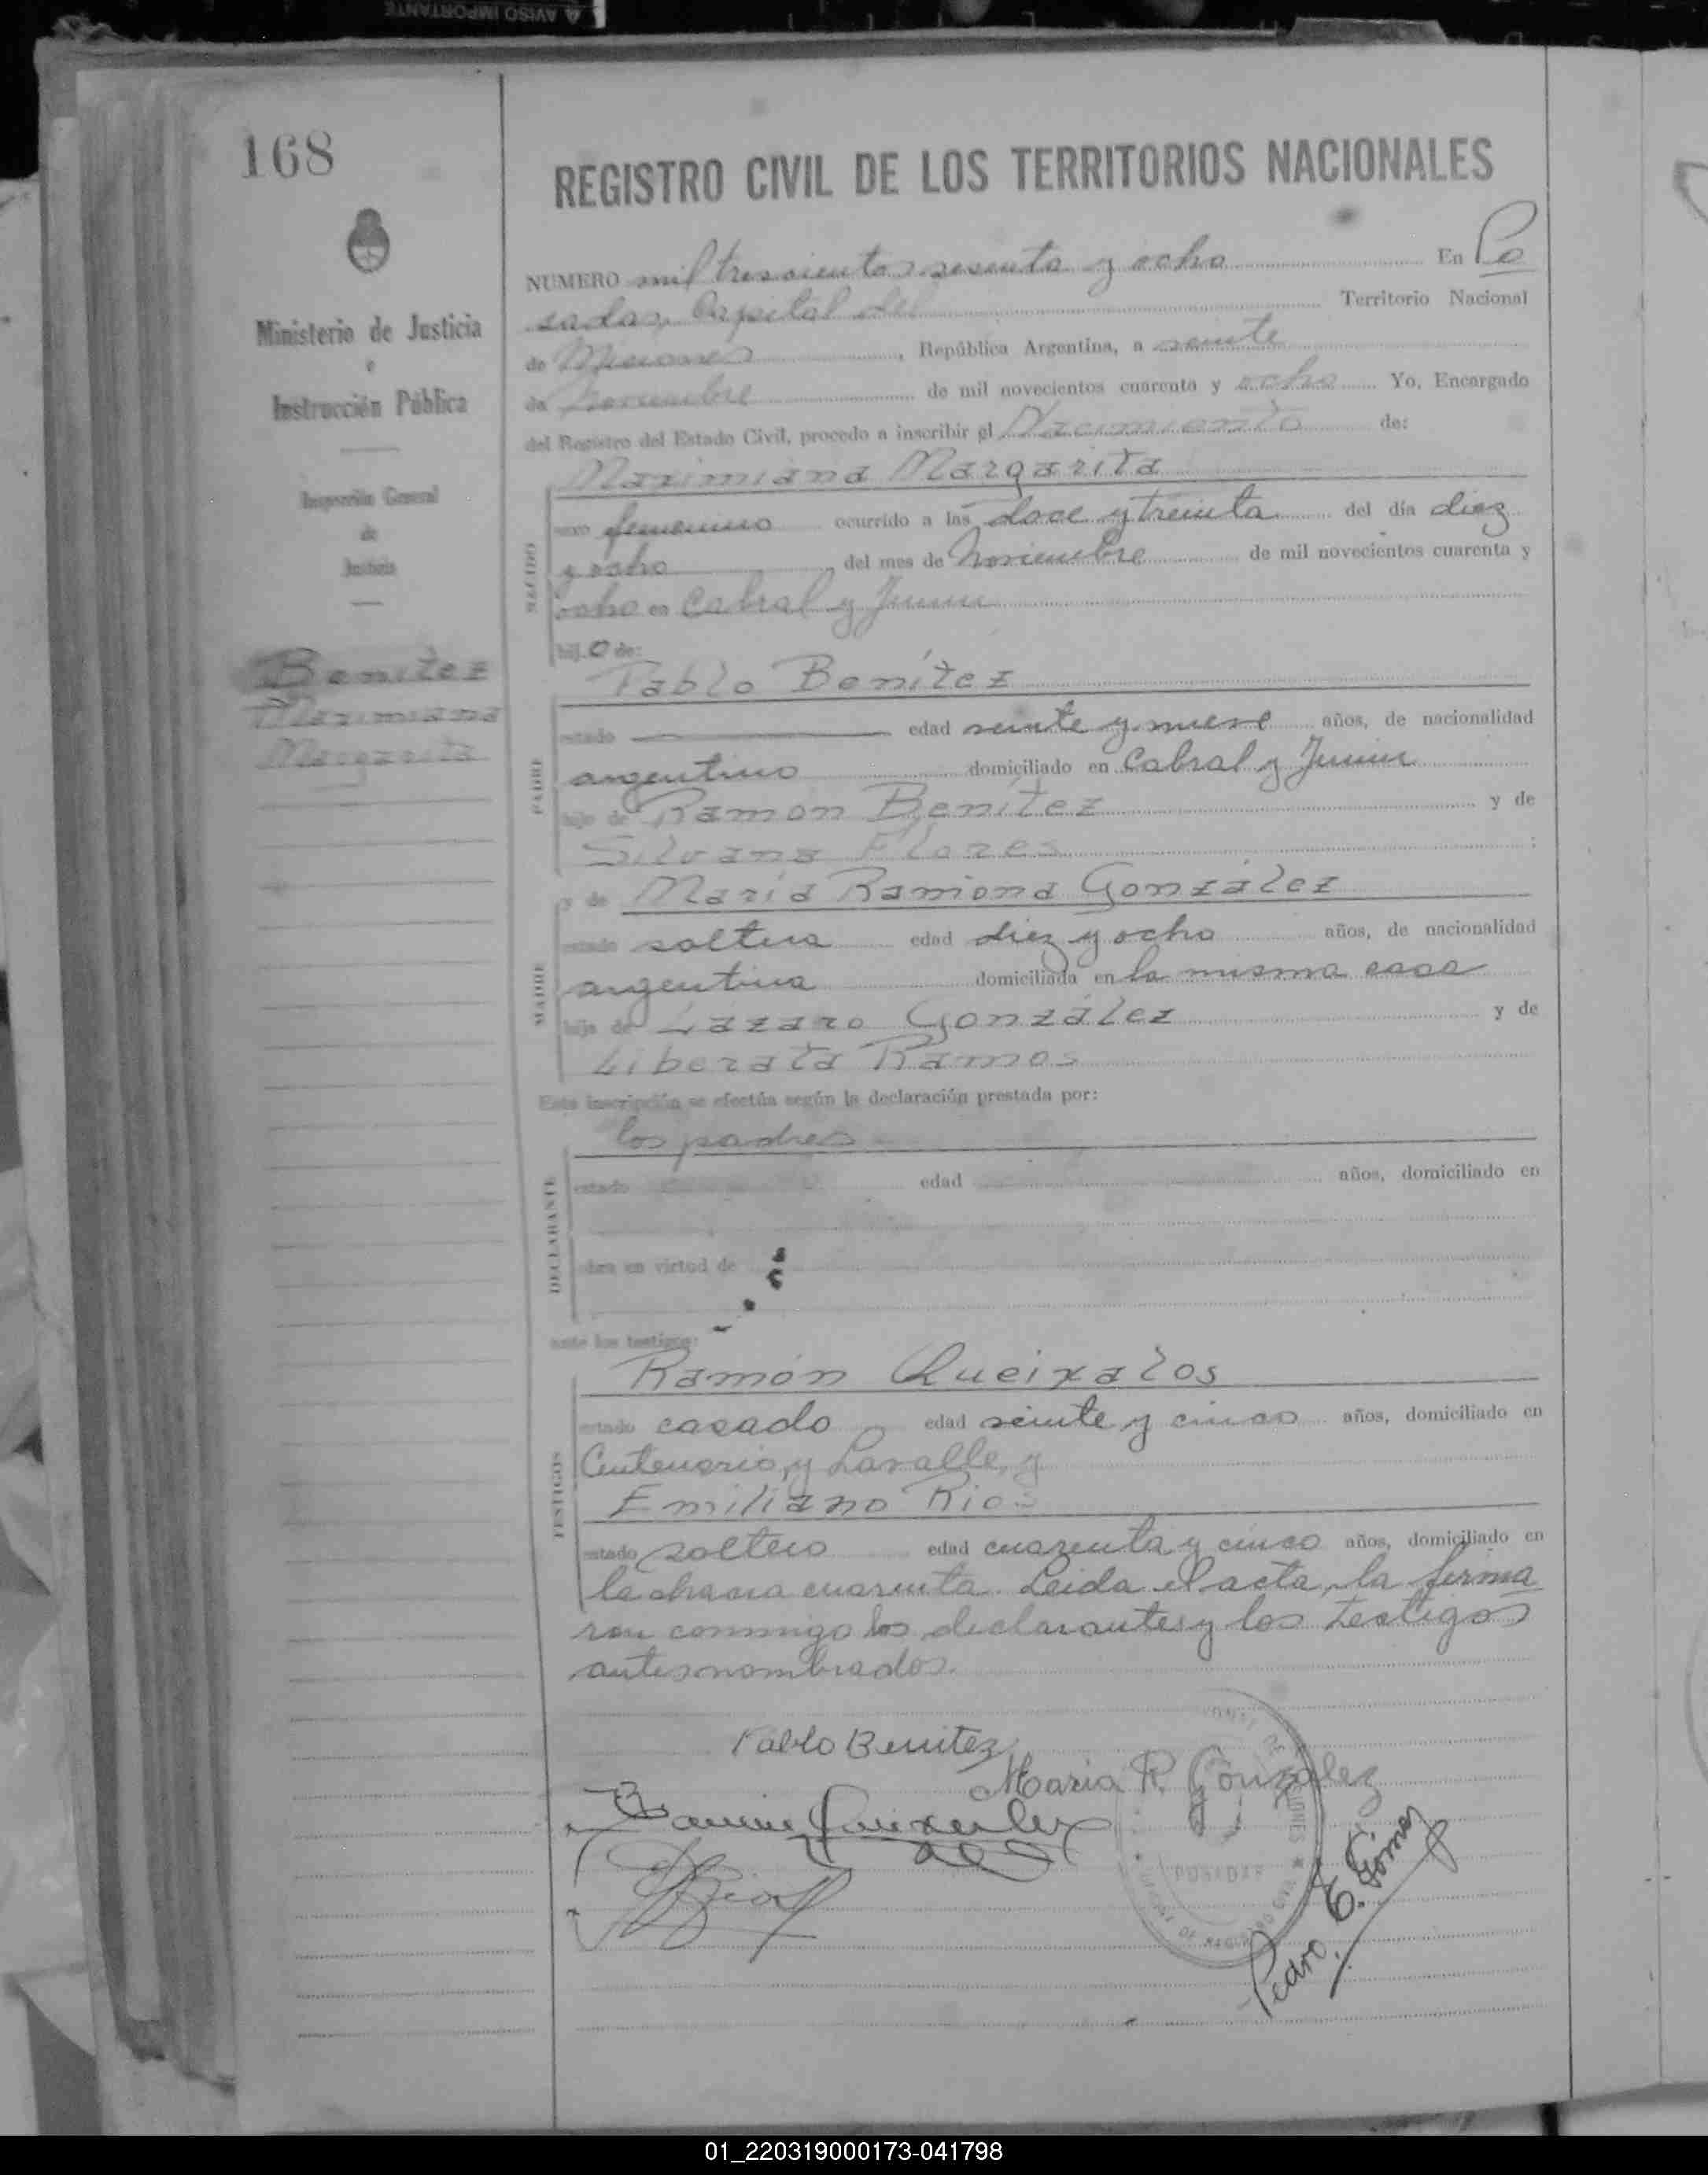 AVISO IMPORTANTE
168
REGISTRO CIVIL DE LOS TERRITORIOS NACIONALES
NUMERO mil trescientos sesenta y ocho En Po
sadas, Capital del Territorio Nacional
de Misiones, República Argentina, a veinte
de noviembre de mil novecientos cuarenta y ocho Yo, Encargado
del Registro del Estado Civil, procedo a inscribir el Nacimiento de:
Maximiana Margarita
sexo femenino ocurrido a las doce y treinta del día diez
y ocho, del mes de Noviembre de mil novecientos cuarenta y
ocho en Cabral y Junin
hij.o de:
NACIDO
Pablo Benítez
estado edad veinte y nueve años, de nacionalidad
argentino domiciliado en Cabral y Junin
hijo de Ramon Benítez y de
Silvana Flores ;
PADRE
y de María Ramona González
estado soltera edad diez y ocho años, de nacionalidad
argentina domiciliada en la misma casa
hija de Lázaro González y de
Liberata Ramos
MADRE
Esta inscripción se efectúa según la declaración prestada por:
los padres
estado edad años, domiciliado en
obra en virtud de
DECLARANTE
ante los testigos:
Ramón Queixalos
estado casado edad veinte y cinco años, domiciliado en
Centenario y Lavalle, y
Emiliano Rios
estado soltero edad cuarenta y cinco años, domiciliado en
la chacra cuarenta. Leida el acta, la firma
ron conmigo los declarantes y los testigos
antesnombrados.
TESTIGOS
Pablo Benitez
Maria R. Gonzalez
Pedro E. Gómez
POSADAS
Ministerio de Justicia
e
Instrucción Pública
Inspección General
de
Justicia
Benítez
Maximiana
Margarita
01_220319000173-041798